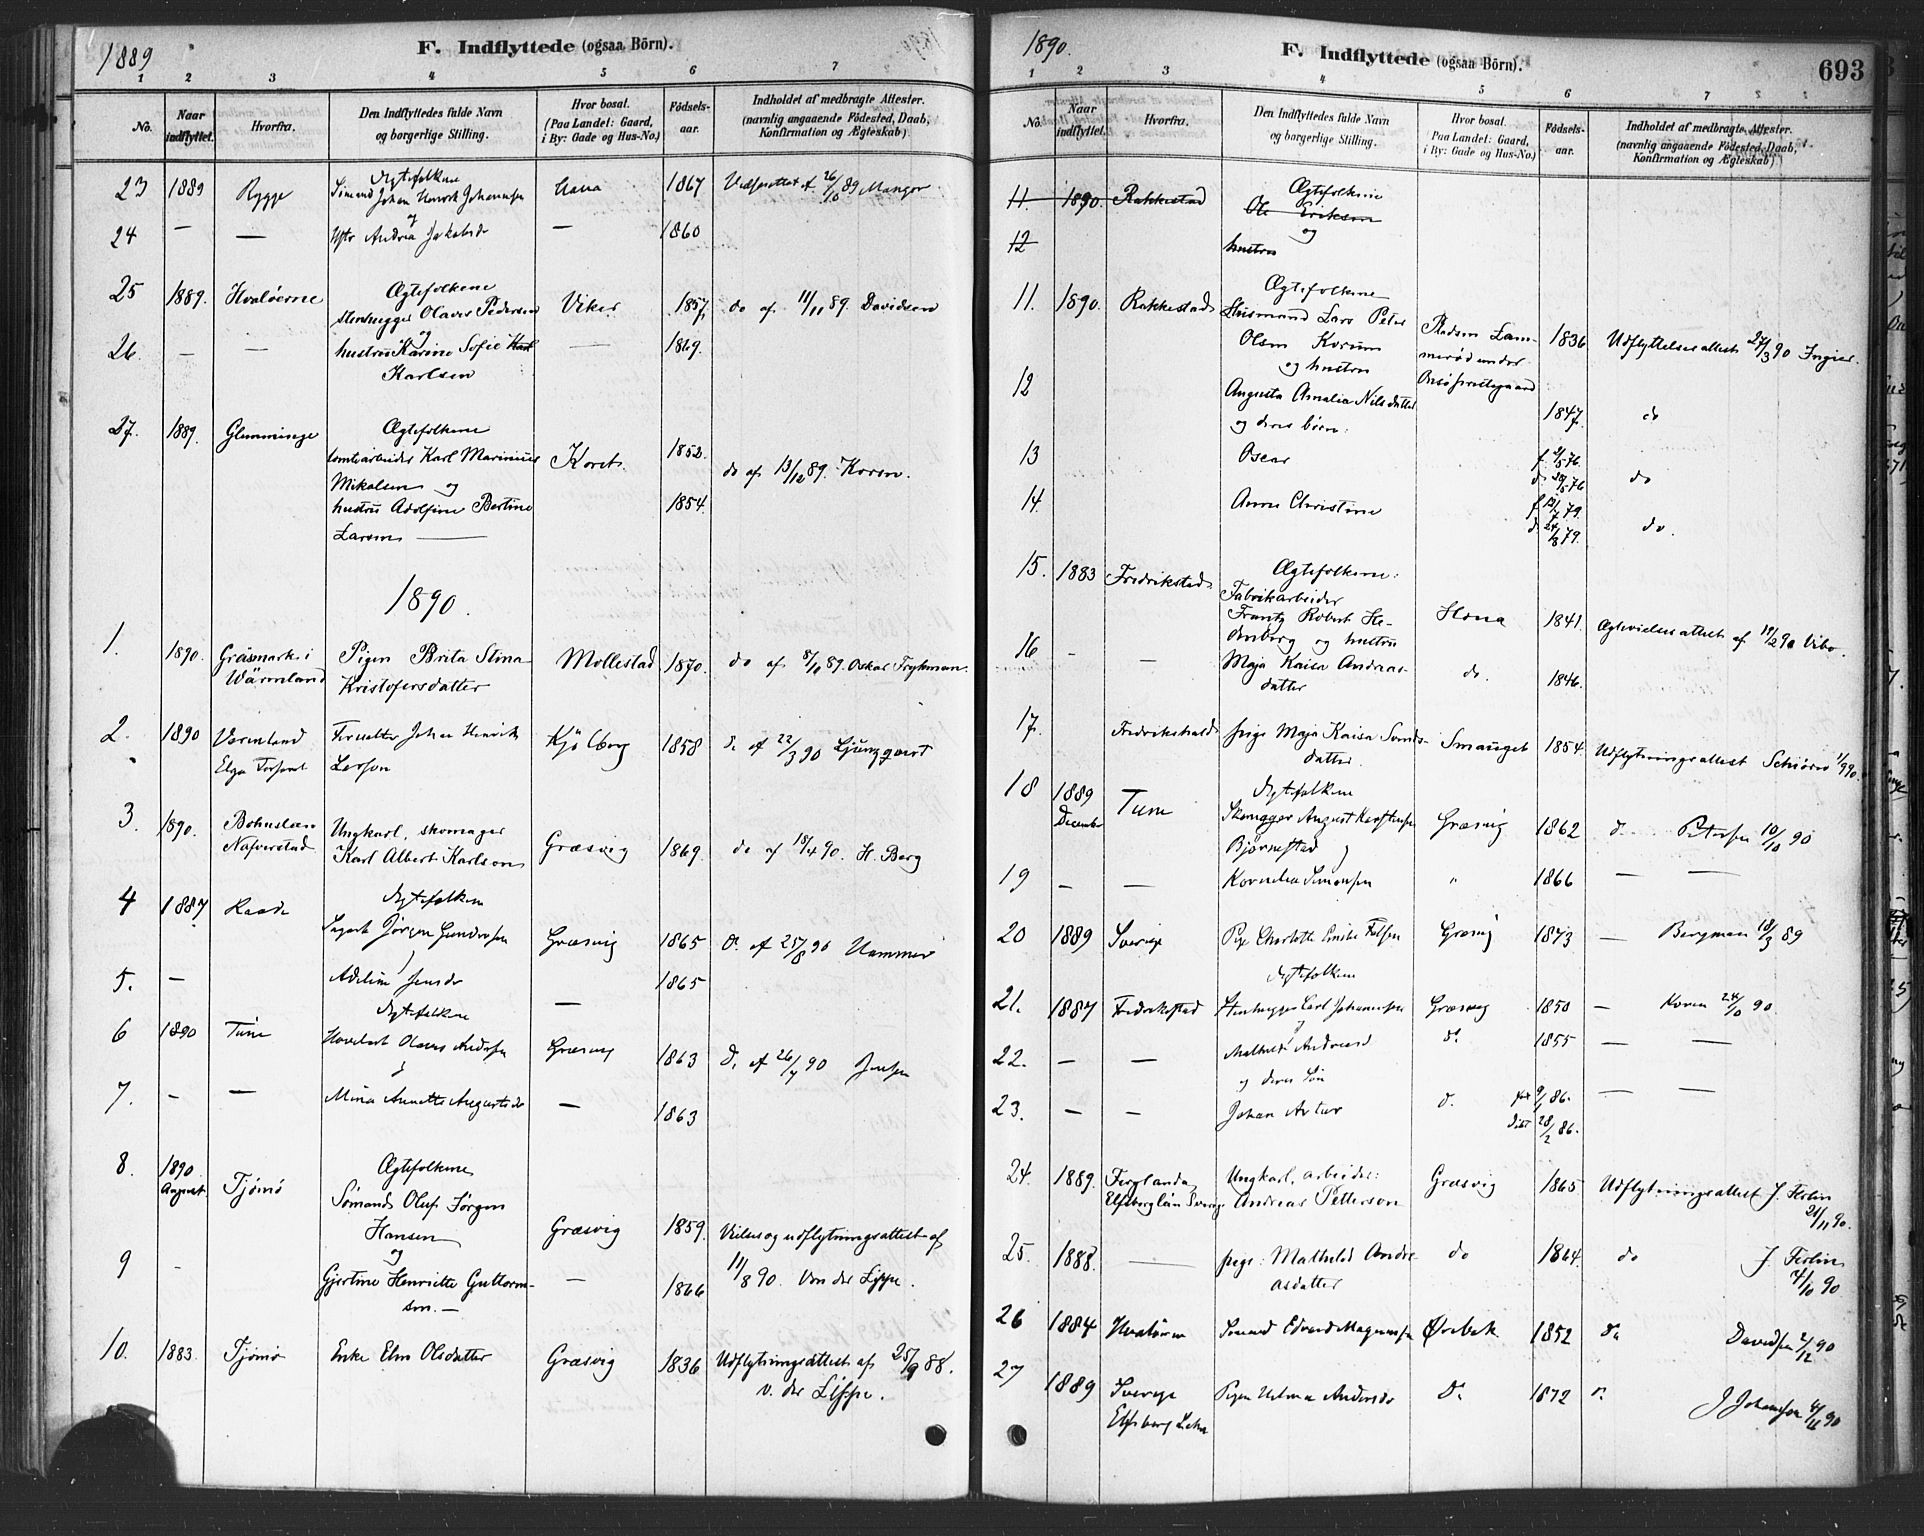 1889
F. Indflyttede (ogsaa Börn).
1 2 3 4 5 6 7
No. Naar indflyttet. Hvorfra. Den Indflyttedes fulde Navn og borgerlige Stilling. Hvor bosat. (Paa Landet: Gaard, i By: Gade og Hus-No.) Fødselsaar. Indholdet af medbragte Attester. (navnlig angaaende Födested, Daab, Konfirmation og Ægteskab)
Ægtefolkene
23 1889 Rygge Sømand Johan Henrik Johannsen 1867 26/10 89
og
24 — — Andrea Jakobsd — 1860
Ægtefolkene
25 1889. Hvaløerne stenhugger Olaves Pedersen Viker 1857 do af 11/11 89. Davidsen
og
26. — — hustru Karine Sofie Karl — 1869.
Karlsen
27. 1889. Glemminge Ægtefolkene
tomtearbeider Karl Marinius 1852. do af 13/12 89. Koren.
Mikalsen og
hustru Adolfine Bertine 1854.
Larsen —
1890.
1. 1890. Gräsmark i Pigen Brita Stina Mollestad 1870. do af 8/10 89. Oskar Frykman.
Wärmland Kristofersdatter
2. 1890 Vermland Johan Henrik Kjølberg 1858 do af 22/3 90 Ljungqvist
3. 1890. Bohuslen Ungkarl, skomager
Nafverstad Karl Albert Karlson Græsvig 1869. do af 18/4 90. H. Berg
Ægtefolkene
4 1887 Raade Jørgen Gundersen Græsvig 1865 do af 25/8 90
5. — Adeline Jensdr — 1865
Ægtefolkene
6 1890 Tune Olaves Andersen Græsvig 1863 do af 26/7 90 Jensen
7. — — Mina Annette Augustsdr — 1863
8. 1890 August. Tjømø Ægtefolkene
Sømand Oluf Jørgen
Hansen Græsvig 1859. Vielses og udflytningsattest af
og
9 — Gjertine Henriette Guttorm- — 1866 11/8 90. Von der Lippe.
sen. —
10. 1883. Tjømø Enke Elen Olsdatter Græsvig 1836 Udflytningsattest af 25/9 88.
v. der Lippe.
1890.
F. Indflyttede (ogsaa Börn).
693
1 2 3 4 5 6 7
No. Naar indflyttet. Hvorfra. Den Indflyttedes fulde Navn og borgerlige Stilling. Hvor bosat. (Paa Landet: Gaard, i By: Gade og Hus-No.) Fødselsaar. Indholdet af medbragte Attester. (navnlig angaaende Födested, Daab, Konfirmation og Ægteskab)
11. 1890. Rakkestad Ægtefolkene
Ole Eriksen
og
12 hustru
11. 1890. Rakkestad Ægtefolkene
Husmand Lars Peter
Olsen Korum Pladsen Lam- 1836 Udflyttelsesattest 27/3 90 Ingier.
og hustru merød under
12 Augusta Amalia Nilsdatter Onsø prestegaard 1847. do
og deres børn:
13 Oscar f. 2/5 76. d. 30/5 76 do
14. Anna Christine f 13/7 79. d. 24/8 79. do.
15. 1883 Fredrikstad Ægtefolkene:
Fabrikarbeider
Frantz Robert He- Hona 1841. Ægtevielsesattest af 19/2 90 Vibo.
denberg og hustru
16 — — Maja Kaisa Andreas- do. 1846.
datter
17. Fredrikshald pige Maja Kaisa Svends- Smauget 1854. Udflytningsattest Schiørn 1/9 90.
datter.
18 1889 December Tune Ægtefolkene
August Græsvig 1862 do Petersen 10/10 90
Bjørnestad og
19 — — Kornelia Simonsen " 1866 — —
20 1889 Sverige Pige Charlotte Emilie Græsvig 1843 — Bergman 18/3 89
Ægtefolkene
21. 1887 Fredrikstad Stenhugger Carl Johannesen Græsvig 1850 — Koren 24/10 90.
og
22. — — Mathilde Andreasd do 1855 — —
og deres Søn
23. — — Johan Artur do. født 9/1 86. døbt 28/2 86. — —
24. 1889. Ferglanda Ungkarl, arbeider: Græsvig 1865 Udflytningsattest J. Ferlin
Elfsborg län Sverige Andreas Petterson 21/11 90.
25. 1888. — pige: Mathilde Andre- do 1864. do J. Ferlin
asdatter 7/10 90
26 1884 Hvaløerne Sømand Edvard Magnussen Ørebæk. 1852 do Davidsen 2/12 90
27 1889 Sverige Pigen Andersdr do 1872 do J Johansson 4/11 90
Elfsborg Lehn